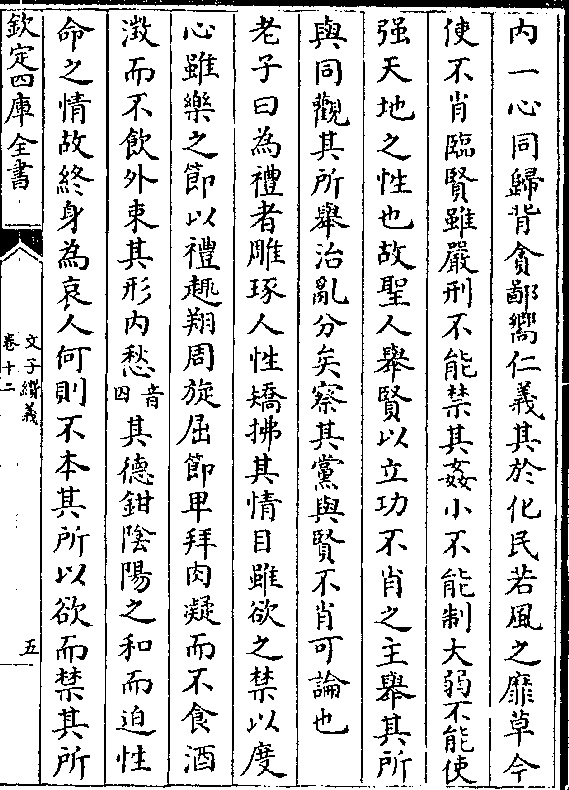 内一心同歸背貪鄙嚮仁義其於化民若風之靡草今
使不肖臨賢雖嚴刑不能禁其姦小不能制大弱不能使
强天地之性也故聖人舉賢以立功不肖之主舉其所
與同觀其所舉治亂分矣察其黨與賢不肖可論也
老子曰為禮者雕琢人性矯拂其情目雖欲之禁以度
心雖樂之節以禮趣翔周旋屈節卑拜肉凝而不食酒
澂而不飲外束其形内愁音四其德鉗陰陽之和而迫性
命之情故終身為哀人何則不本其所以欲而禁其所
欽定四庫全書
文子纘義
卷十二
五